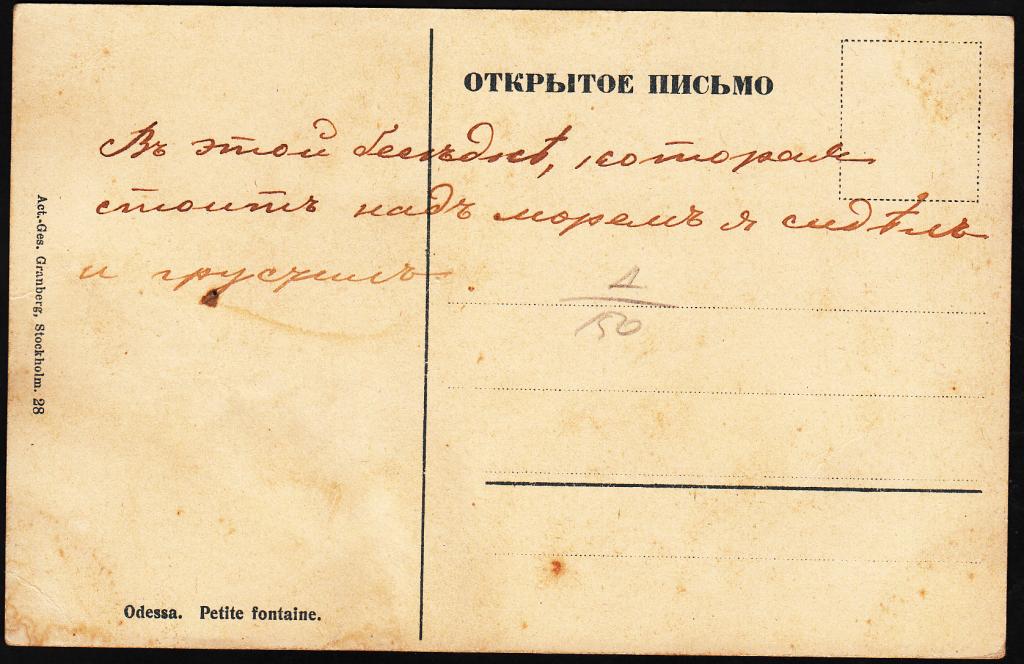 ОТКРЫТОЕ ПИСЬМО
Въ этой бесѣдкѣ, которая
стоитъ надъ моремъ я сидѣлъ
и грустилъ
1
150
Act.-Ges. Granberg, Stockholm. 28
Odessa. Petite fontaine.